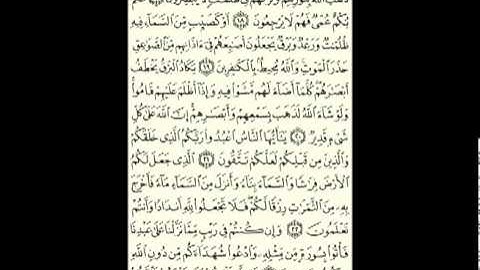 ذَهَبَ ٱللَّهُ بِنُورِهِمْ وَتَرَكَهُمْ فِى ظُلُمَٰتٍ لَّا يُبْصِرُونَ ١٧ صُمٌّۢ
بُكْمٌ عُمْىٌ فَهُمْ لَا يَرْجِعُونَ ١٨ أَوْ كَصَيِّبٍ مِّنَ ٱلسَّمَآءِ فِيهِ
ظُلُمَٰتٌ وَرَعْدٌ وَبَرْقٌ يَجْعَلُونَ أَصَٰبِعَهُمْ فِىٓ ءَاذَانِهِم مِّنَ ٱلصَّوَٰعِقِ
حَذَرَ ٱلْمَوْتِ وَٱللَّهُ مُحِيطٌۢ بِٱلْكَٰفِرِينَ ١٩ يَكَادُ ٱلْبَرْقُ يَخْطَفُ
أَبْصَٰرَهُمْ كُلَّمَآ أَضَآءَ لَهُم مَّشَوْا۟ فِيهِ وَإِذَآ أَظْلَمَ عَلَيْهِمْ قَامُوا۟
وَلَوْ شَآءَ ٱللَّهُ لَذَهَبَ بِسَمْعِهِمْ وَأَبْصَٰرِهِمْ إِنَّ ٱللَّهَ عَلَىٰ كُلِّ
شَىْءٍ قَدِيرٌ ٢٠ يَٰٓأَيُّهَا ٱلنَّاسُ ٱعْبُدُوا۟ رَبَّكُمُ ٱلَّذِى خَلَقَكُمْ
وَٱلَّذِينَ مِن قَبْلِكُمْ لَعَلَّكُمْ تَتَّقُونَ ٢١ ٱلَّذِى جَعَلَ لَكُمُ
ٱلْأَرْضَ فِرَٰشًا وَٱلسَّمَآءَ بِنَآءً وَأَنزَلَ مِنَ ٱلسَّمَآءِ مَآءً فَأَخْرَجَ
بِهِۦ مِنَ ٱلثَّمَرَٰتِ رِزْقًا لَّكُمْ فَلَا تَجْعَلُوا۟ لِلَّهِ أَندَادًا وَأَنتُمْ
تَعْلَمُونَ ٢٢ وَإِن كُنتُمْ فِى رَيْبٍ مِّمَّا نَزَّلْنَا عَلَىٰ عَبْدِنَا
فَأْتُوا۟ بِسُورَةٍ مِّن مِّثْلِهِۦ وَٱدْعُوا۟ شُهَدَآءَكُم مِّن دُونِ ٱللَّهِ